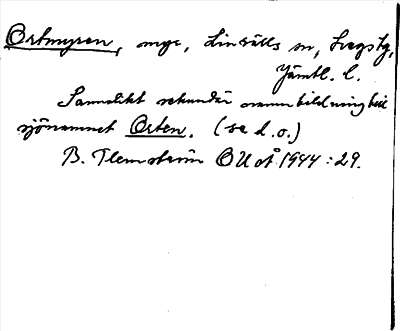 Ortmyren, myr, Linsälls sn, Svegs tg,
Jämtl. l.
Sannolikt sekundär namnbildning till
sjönamnet Orten. (se d. o.)
B. Flemström OUÅ 1944 : 29.